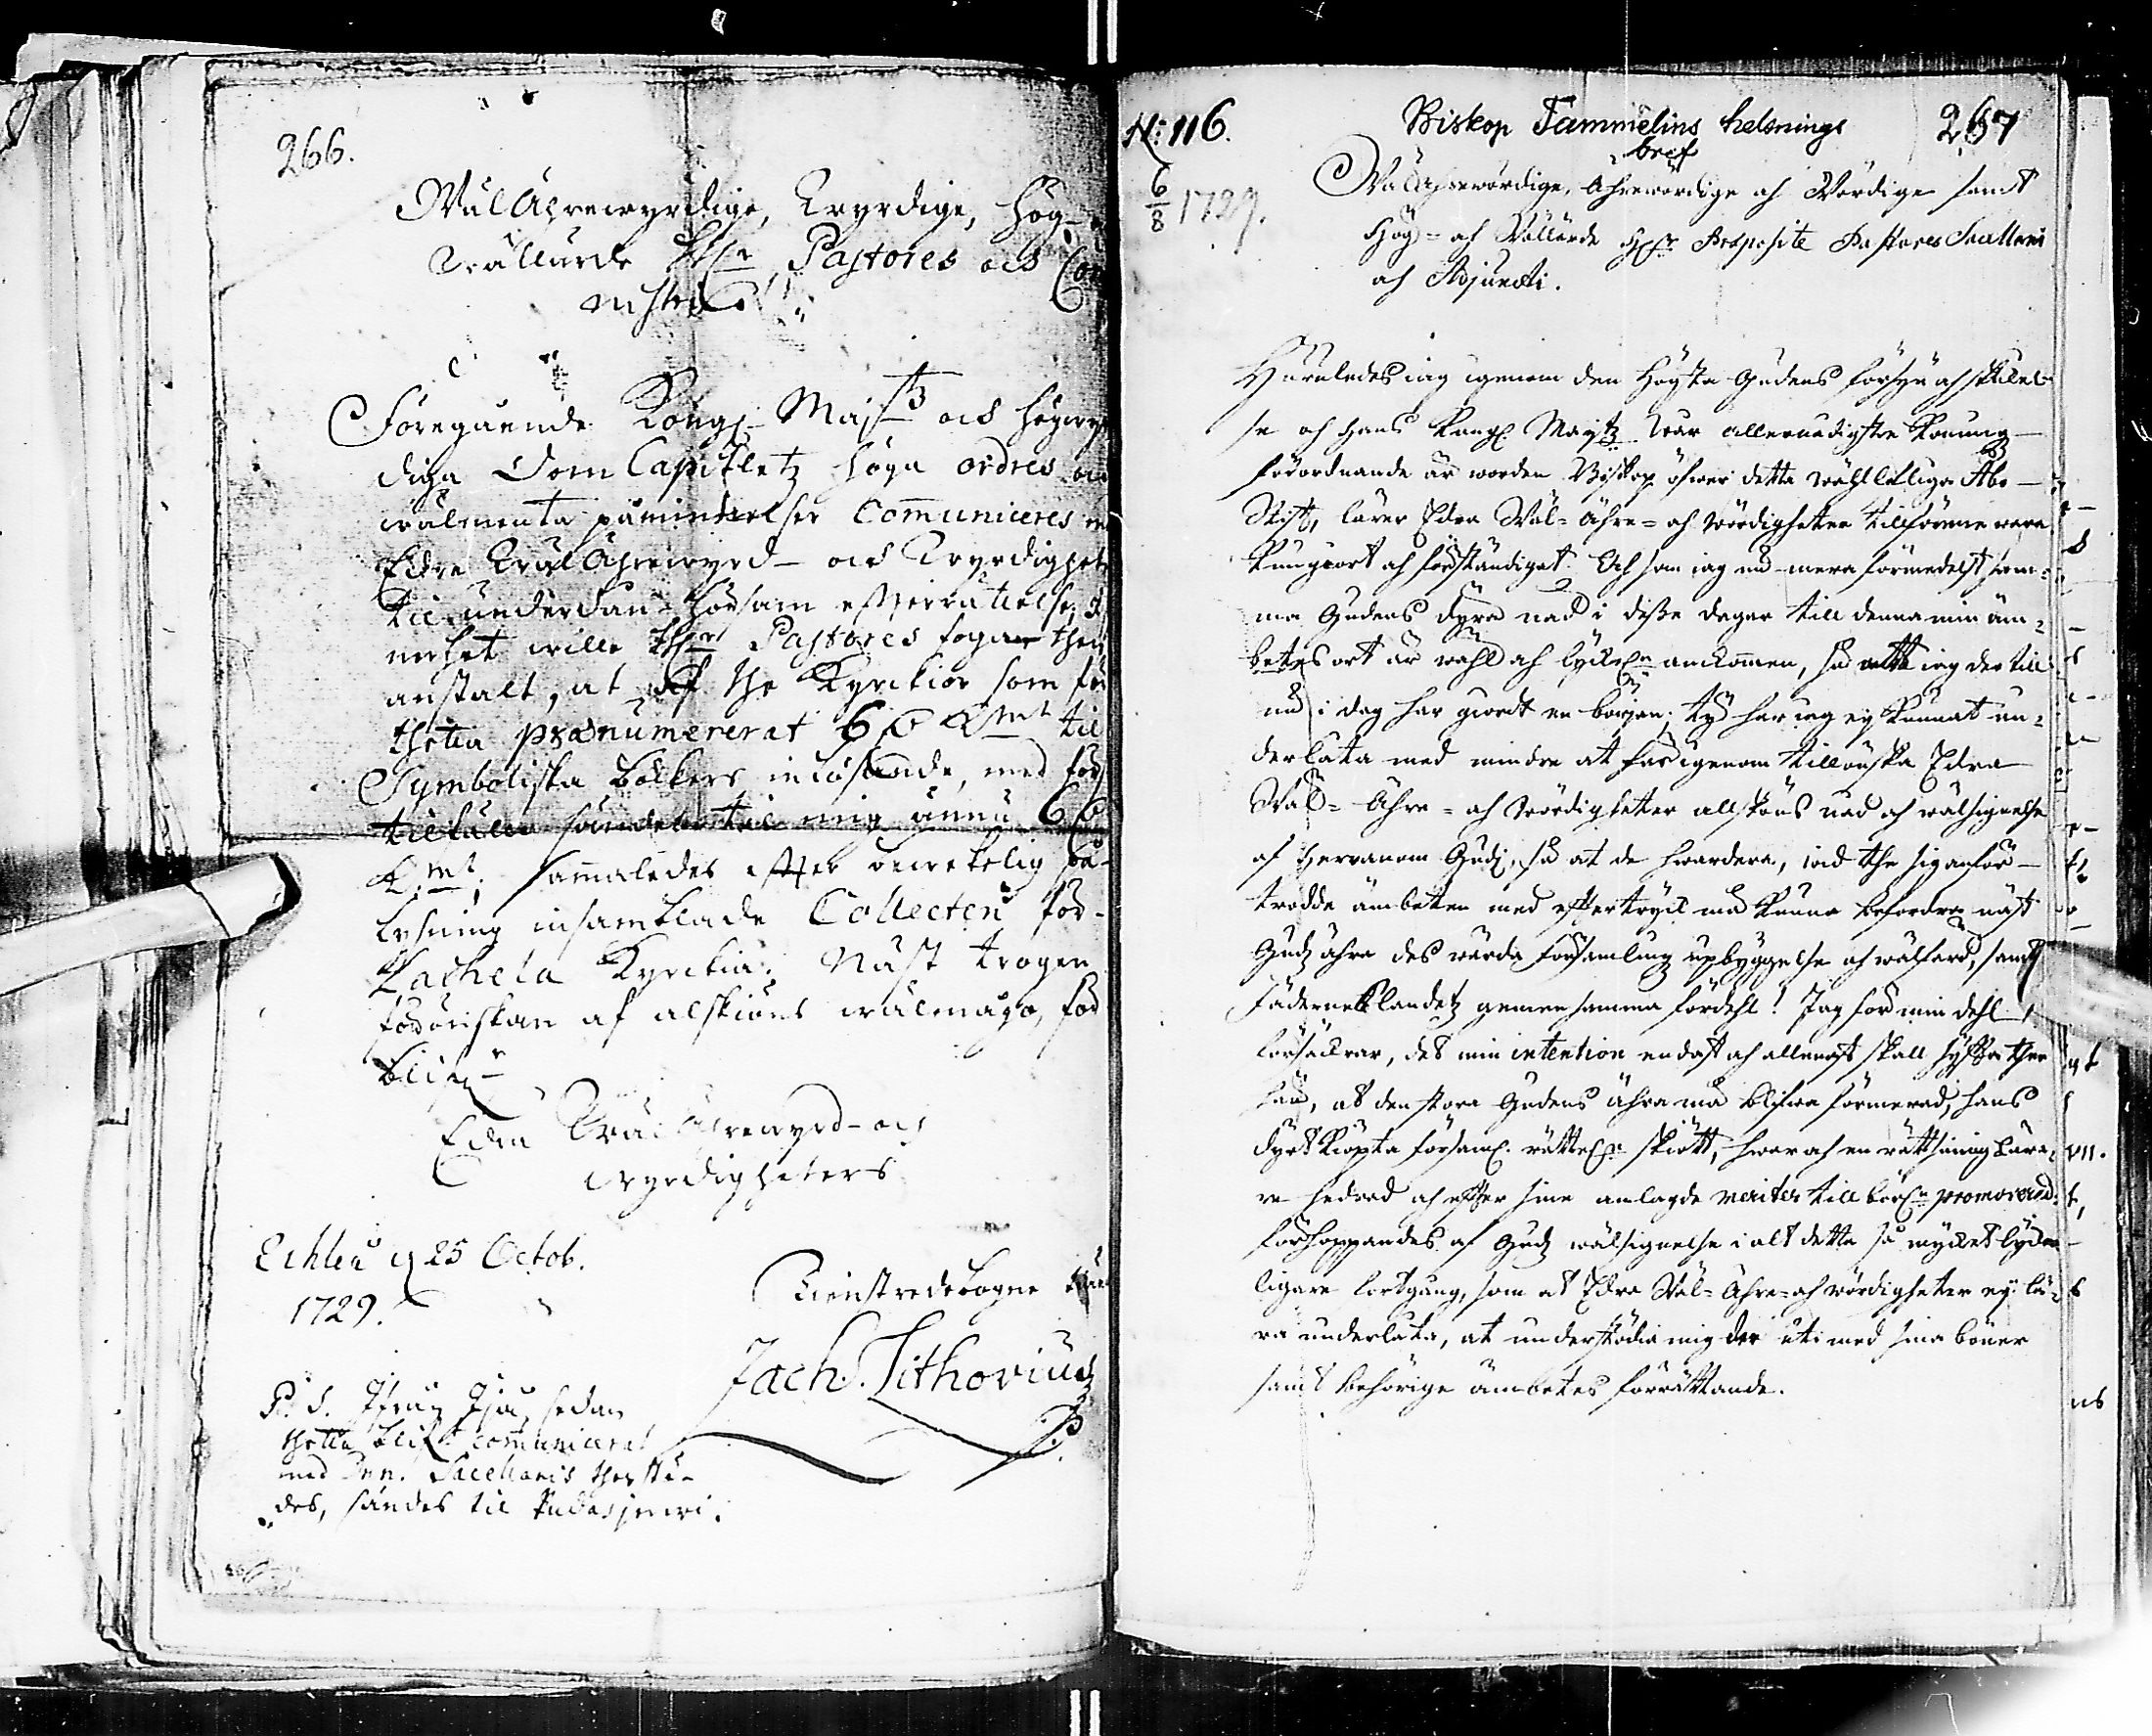 266.
WälÄhrewyrdige, Wyrdige, Hög-
Wällärde H:r Pastores och
Föregående Kongl. Maj:tz och högwyr
diga Dom Capitletz höga ordres och
wälmenta påminnelser Communiceres
Edra WälÄhrewyrd- och Wyrdigheter
til underdån- hörsam efterrättelse,
wille H:r Pastores foga
anstalt, at af the Kyrckior som
thetta prænumererat 6 til
Symboliska Böckers inlösande, med
sändes til mig ännu 6
K:mt. sammaledes efter
lysning insamblade Collecten för
Lachela Kyrckia. Näst trogen
förönskan af alskiöns wälmågo, för
blif:r
Edra WälÄhrewyrd- och
Wyrdigheters
d 25 Octob.
1729.
Tienstredebogne
Zach. Lithovius
P.
P.S. Ifrån Ijo, sedan
thetta blif:t communicerat
med Dnn. Sacellanis
des, sändes til Pudasjerwi.
N: 116.
Biskop Tammelins helsnings
bref
267
6
8
1729.
WälÄhrewördige, Ährewördige och Wördige samt
Hög- och Wällärde H:r Præposite Pastores Sacellani
och Adjuncti.
Huruledes iag igenom den Högsta Gudens försyn och skickel-
se och Hans Kongl. Maytz wår allernådigste Konung
förordnande är worden Biskop öfwer detta wählloflige Åbo
Stift, lärer Edra Wäl- Ähre- och Wördigheter tillförenne wara
kungiort och förständigat. Och som iag nu mera förmedelst sam-
ma Gudens dyra nåd i desse dagar till denna min äm-
betes ort är wähl och lyckel:n anckommen, så att iag der till
nu i dag har giordt en början; ty har iag ey kunnat un-
derlåta med mindre at här igenom tillönska Edra
Wäl- Ähre- och Wördigheter allskiöns nåd och wälsignelse
af Herranom Gud, så at de hwardera, wid the sig anför-
trodde ämbeten med eftertryck må kunna befordra näst
Gudz ähra des wärda församling upbyggelse och wälfärd, samt
Fäderneslandetz gemensamma fördehl! Jag för min dehl
försäckrar, det min intention endast och allenast skall syfta ther
hän, at den stora Gudens ähra må blifwa förmerad, hans
dyrt kiöpta församl. rättel:n skiött, hwar och en rättsinnig Lära-
re hedrad och efter sine anlagde meriter till börl:n promoverad.
förhoppandes af Gudz wälsignelse i alt detta så mycket lycke-
ligare fortgång, som at Edra Wäl- Ähre- och Wördigheter ey lä-
ra underlåta, at understödia mig der uti med sina böner
samt behörige ämbetes förrättande.